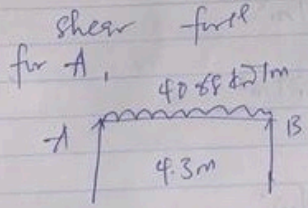 shear force
for A,
40.68 kN/m
A B
4.3m